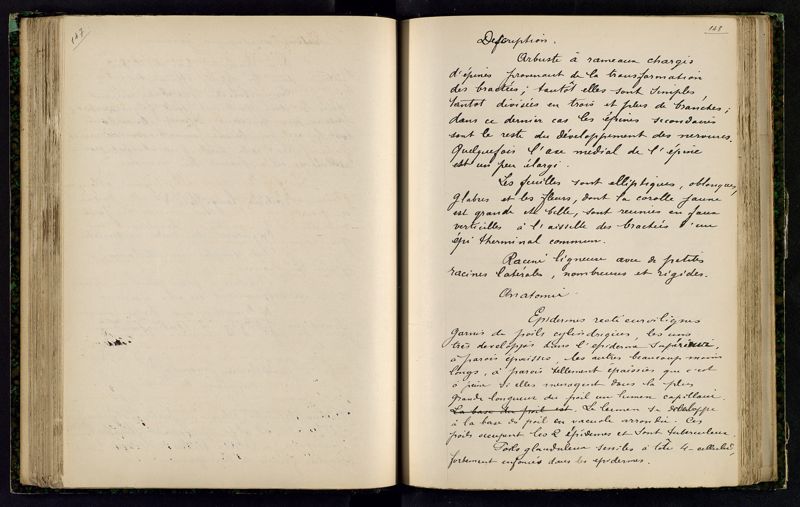 147
148
Description.
Arbuste à rameaux chargés
d'épines provenant de la transformation
des bractées; tantôt elles sont simples
tantot divisées en trois et plus de branches;
dans ce dernier cas les épines secondaires
sont le reste du développement des nervures.
Quelquefois l'axe médial de l'épine
est un peu élargi.
Les feuilles sont elliptiques, oblongues,
glabres et les fleurs, dont la corolle jaune
est grande et belle, sont reunies en faux
verticilles à l'aisselle des bractées d'une
épi therminal commun.
Racine ligneuse avec de petites
racines latérales, nombreuses et rigides.
Anatomie
Epidermes recticurvilignes
garnis de poils cylindriques, les uns
très developpés dans l'epiderme supérieur,
à parois épaisses, les autres beaucoup moins
longs, à parois tellement épaissies que c'est
à peine si elles menagent dans la plus
grande longueur du poil un lumen capillaire.
La base du poil est. Le lumen se developpe
à la base du poil en vacuole arrondie. Ces
poils occupent les 2 épidermes et sont tuberculeux.
Poils glanduleux sessiles à tête 4-cellulaire,
fortement enfoncés dans les epidermes.